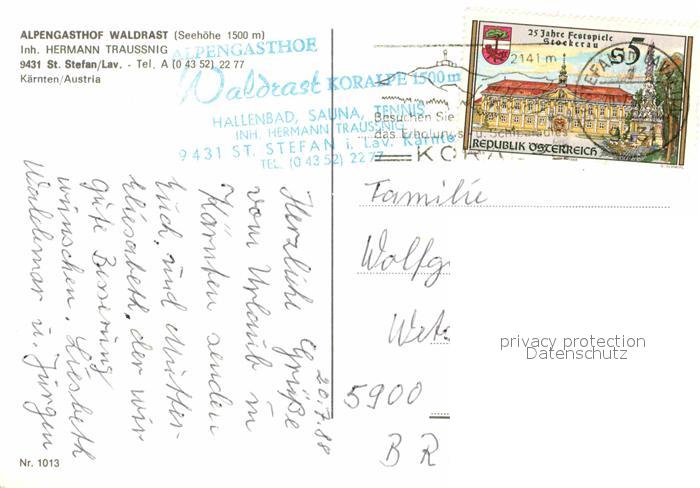 ALPENGASTHOF WALDRAST (Seehöhe 1500 m)
Inh. HERMANN TRAUSSNIG
9431 St. Stefan/Lav. - Tel. A (0 43 52) 22 77
Kärnten/Austria
ALPENGASTHOF
Waldrast KORALPE 1500 m
HALLENBAD, SAUNA, TENNIS
INH. HERMANN TRAUSSNIG
9431 ST. STEFAN i. Lav. Kärnten
TEL. (0 43 52) 22 77
2141 m
Besuchen Sie
das Erholungs- u.
KORA
25 Jahre Festspiele
Stockerau
S5
REPUBLIK ÖSTERREICH
9431
20.7.88
Herzliche Grüße
vom Urlaub in
Kärnten senden
Euch, und Mutter
Elisabeth, der wir
gute Besserung
wünschen. Liesbeth
Waldemar u. Jürgen
Familie
Wolfg
5900
BR
privacy protection
Datenschutz
Nr. 1013